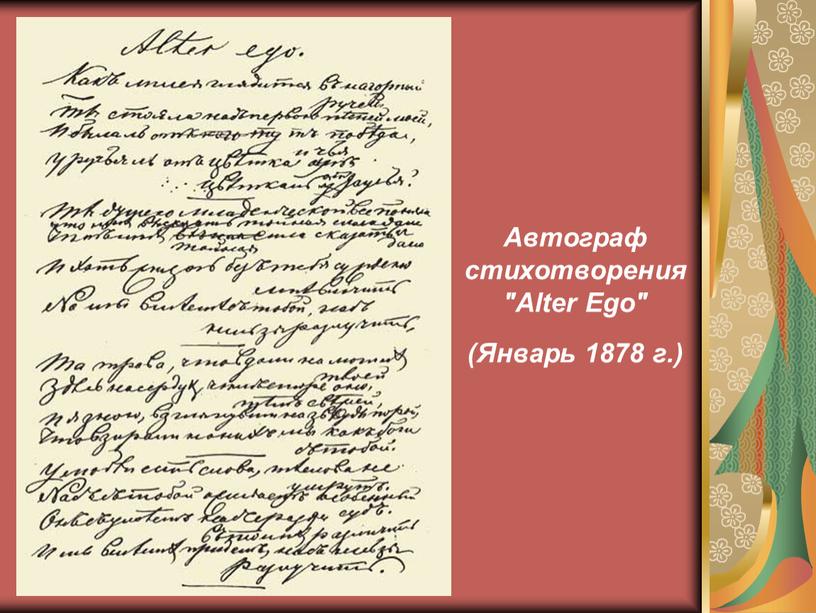 Alter ego.
Какъ лилея глядится въ нагорный
ручей,
Ты стояла надъ первою пѣсней моей,
И была ли победа,
и чья
У ручья ль отъ цвѣтка
цвѣтка ль ручья?
Ты душою младенческой все поняла
Что мнѣ высказать тайная сила
сила сказать
тайная дала
И хоть жизнь безъ тебя суждено
мнѣ влачить
Но мы вмѣстѣ съ тобой, насъ
нельзя разлучить.
Та трава, что вдали на могилѣ
твоей
Здѣсь на сердцѣ, чѣмъ старе оно,
тѣмъ свѣжей,
И я знаю, взглянувши на звѣзды порой,
Что взирали на нихъ мы какъ боги
съ тобой.
У любви есть слова, тѣ слова не
умрутъ.
Насъ съ тобой ожидаетъ особенный
судъ.
Онъ съумѣетъ насъ сразу
различить
И мы вмѣстѣ придемъ, насъ нельзя
разлучить.
Автограф
стихотворения
"Alter Ego"
(Январь 1878 г.)